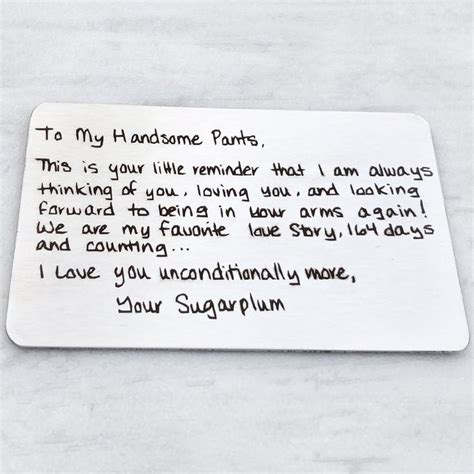 To My Handsome Pants,
This is your little reminder that I am always
thinking of you, loving you, and looking
forward to being in your arms again!
We are my favorite love story, 164 days
and counting...
I Love you unconditionally more,
Your Sugarplum